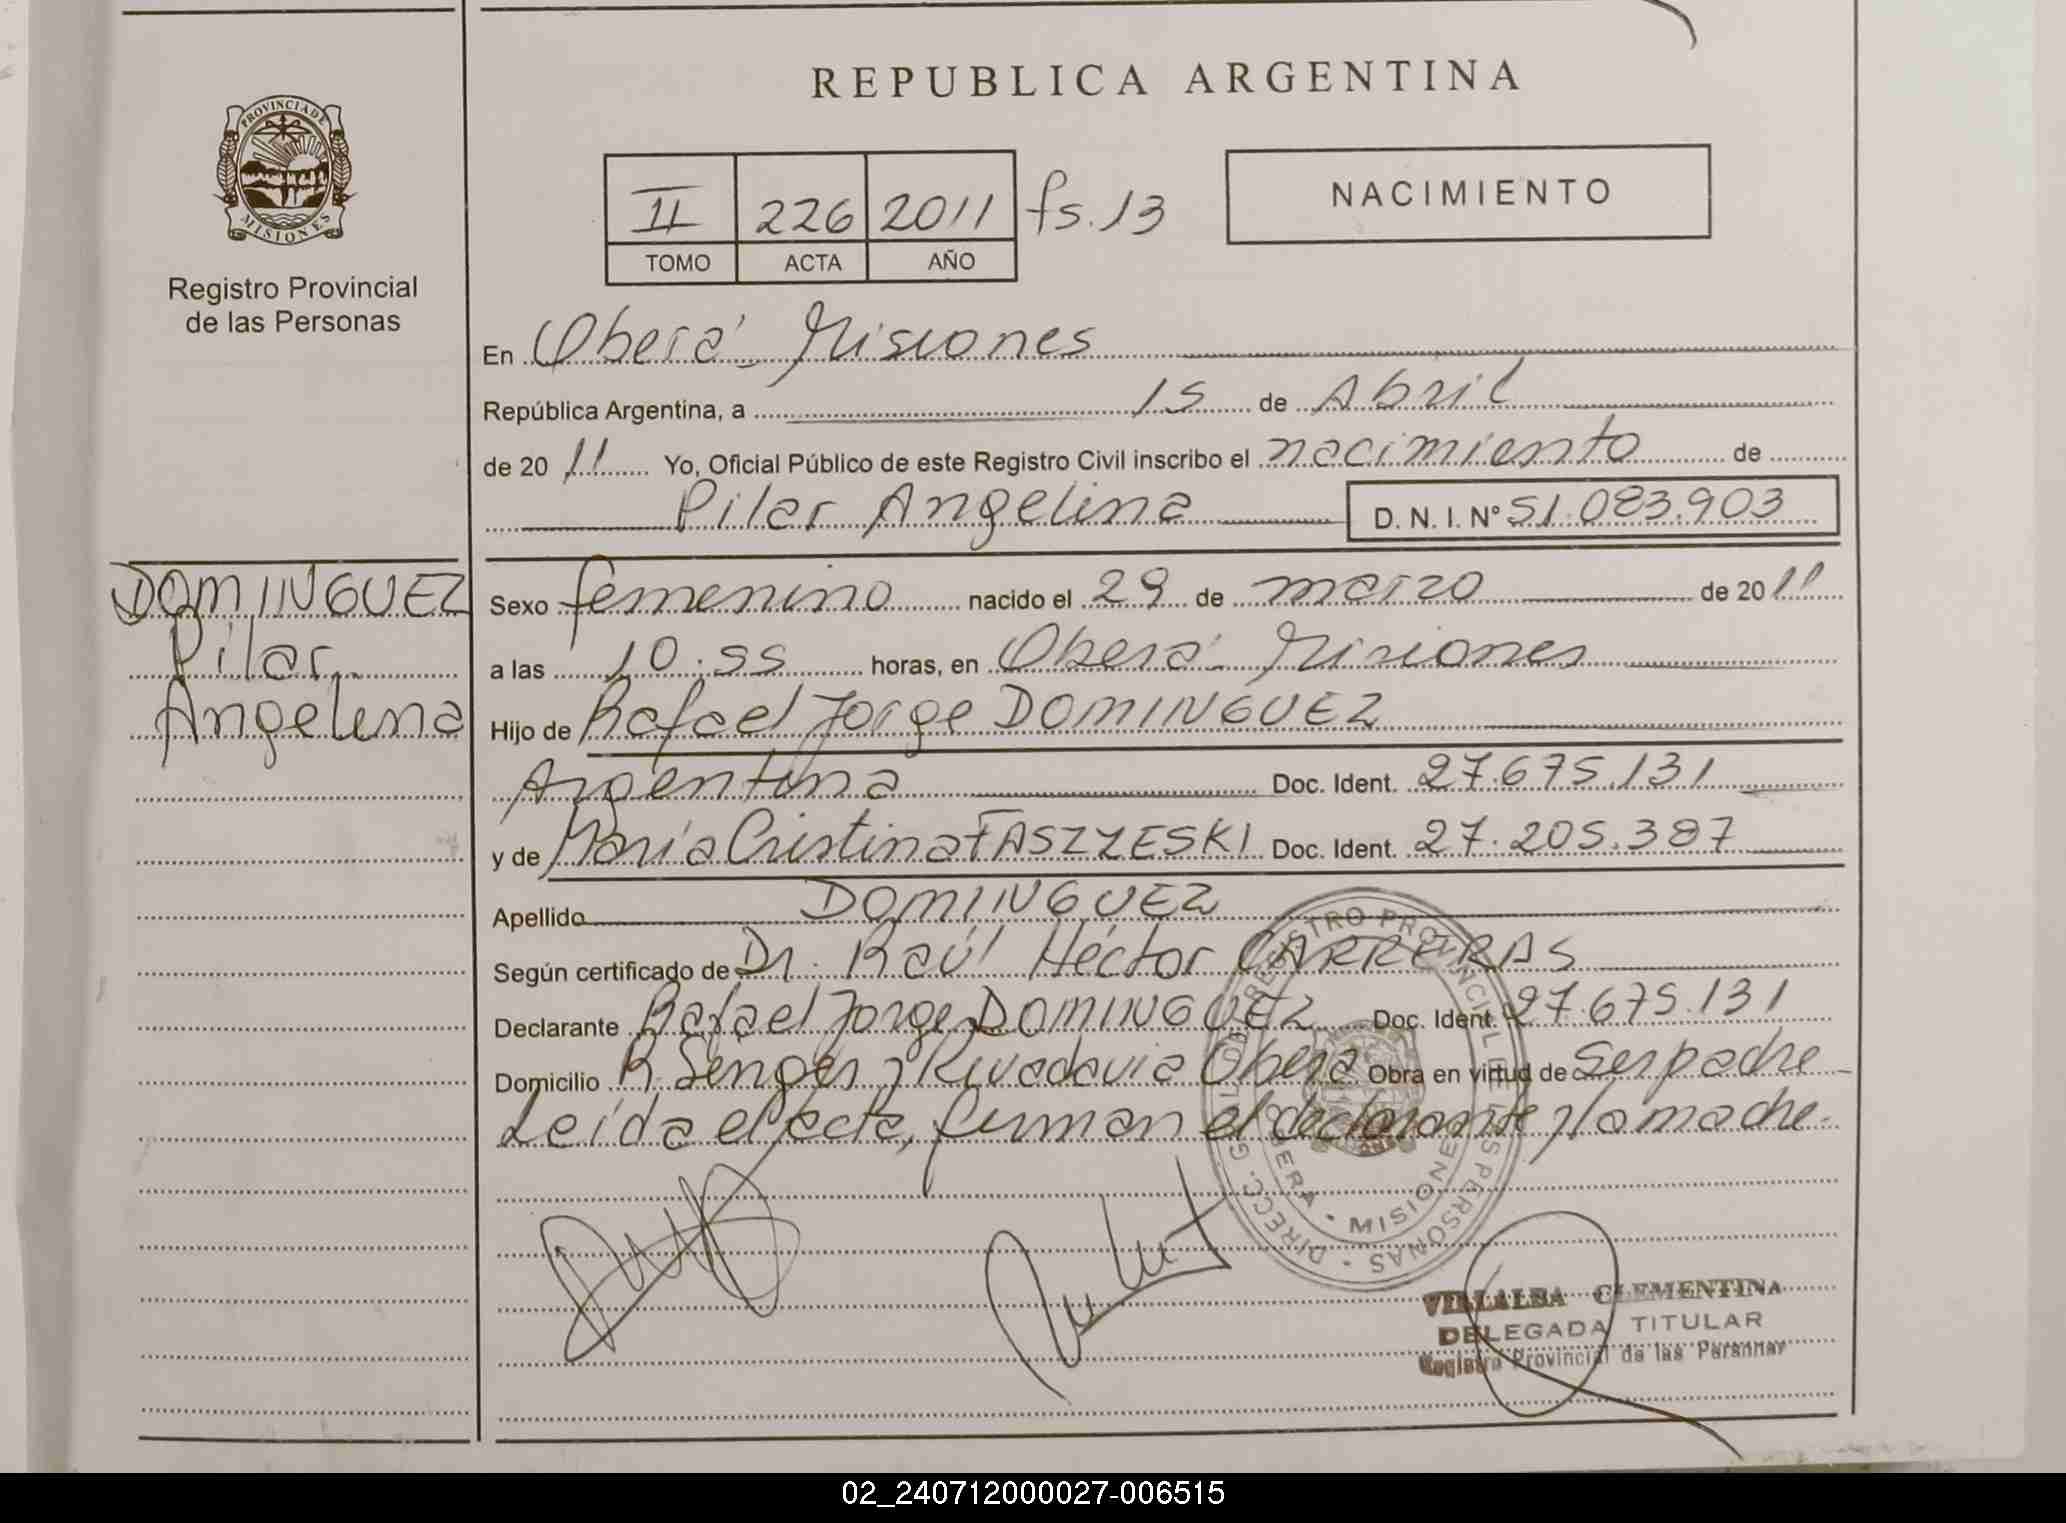 REPUBLICA ARGENTINA
PROVINCIA DE
MISIONES
Registro Provincial
de las Personas
II 226 2011 fs. 13
TOMO ACTA AÑO
NACIMIENTO
En Oberá Misiones
República Argentina, a 15 de Abril
de 20 11 Yo, Oficial Público de este Registro Civil inscribo el nacimiento de
Pilar Angelina D. N. I. Nº 51.083.903
DOMINGUEZ
Pilar
Angelina
Sexo femenino nacido el 29 de marzo de 20 11
a las 10:55 horas, en Oberá Misiones
Hijo de Rafael Jorge DOMINGUEZ
Argentina Doc. Ident. 27.675.131
y de María Cristina FASZZESKI Doc. Ident. 27.205.387
Apellido DOMINGUEZ
Según certificado de Dr. Raúl Héctor CARRERAS
Declarante Rafael Jorge DOMINGUEZ Doc. Ident. 27.675.131
Domicilio R. Senger y Rivadavia Oberá Obra en virtud de ser padre
Leída el acta, firman el declarante y la madre.
DIRECC. G L DEL REGISTRO PROVINCIAL DE LAS PERSONAS
OBERA - MISIONES
VILLALBA CLEMENTINA
DELEGADA TITULAR
Registro Provincial de las Personas
02_240712000027-006515